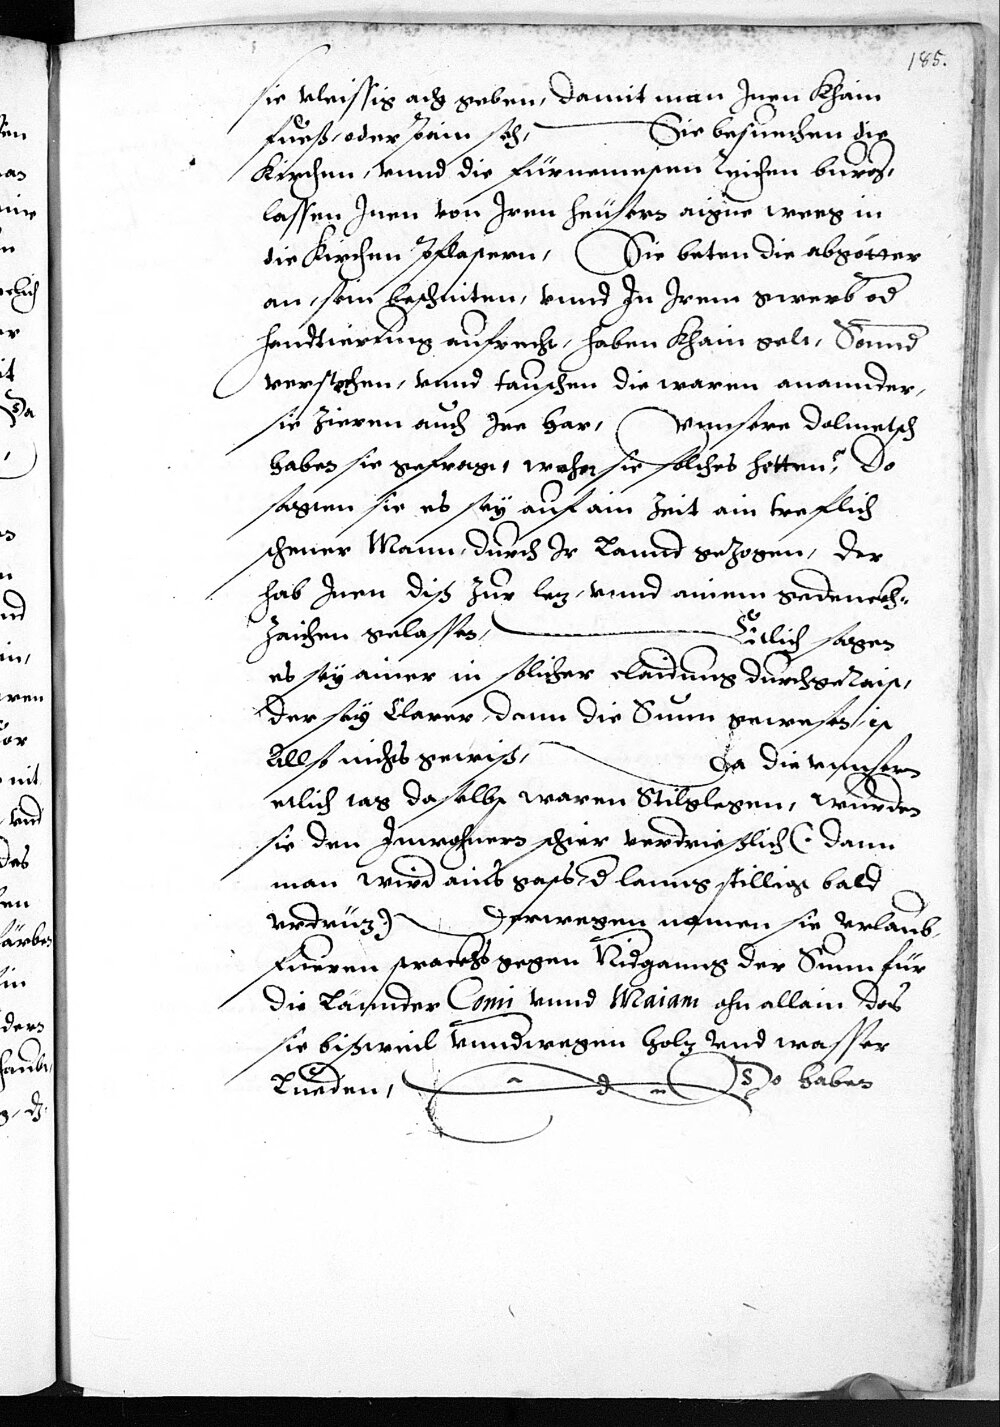 185.
sie vleissig acht geben, damit man Jnen Khain
fueß, oder Pain sech, Sie besuechen die
Kirchen, vnnd die fürnemesten Leichen
lassen Jnen von Jren heüsern aigne weeg in
die Kirchen Pflastern, Sie beten die abgötter
an, sein beschniten, vnnd Jn Jrem gwerb od
handtierung aufrecht, haben Khain gelt, Sonnd
verstechen, vnnd tauschen die waren anainnder,
sie Zieren auch Ire har, vnnsere dolmetsch
haben sie gefragt, woher sie solches hetten? Do
sagten sie es sey auf ain Zeit ain treflich
schener Mann, durch Ir Lannd gezogen, der
hab Jnen diß Zur lez, vnnd ainem gedenckh-
Zaichen gelassen, Etlich sagen
es sey ainer in solicher claidung durchgeraist,
der sey Clarer, dann die Sunn gewesen, ist
Allso nichts gewiß, Da die vnnsern
etlich tag daselbst waren Stilglegen, wurden
sie den Jnwohnern schier verdrießlich (: dann
man wird ains gasts, d lanng stilligt bald
vrdrüz:) Derwegen namen sie vrlaub,
fueren strackhs gegen Nidganng der Sunn für
die Lännder Comi vnnd Maiam ohn allain das
sie bißweil vnnderwegen holz vnd wasser
Lueden, So haben